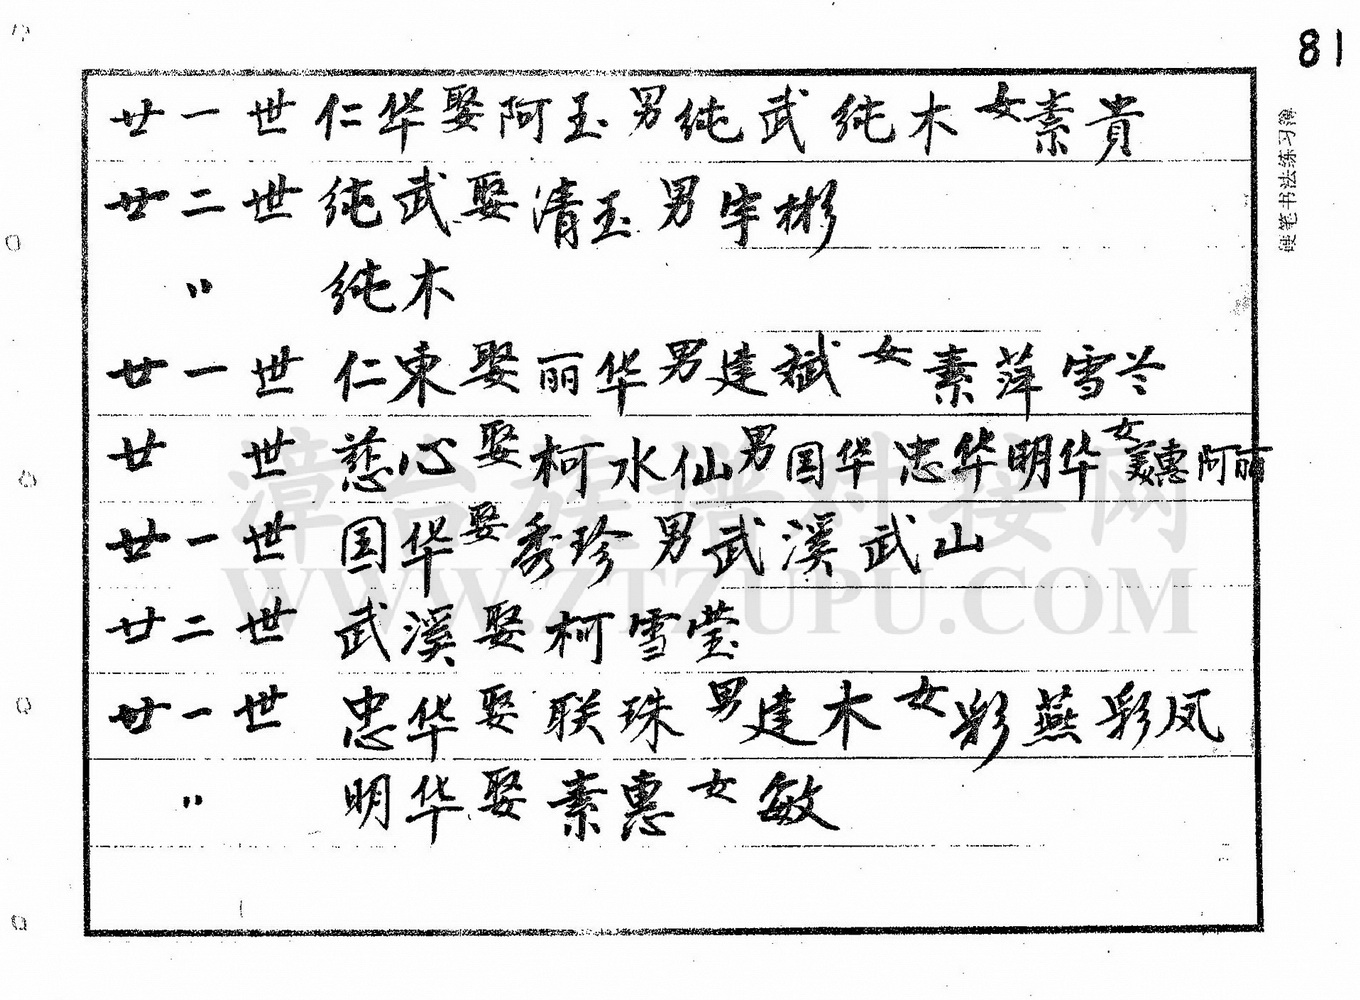 81
廿一世 仁华娶阿玉 男纯武 纯木 女素貴
廿二世 纯武娶清玉 男宇彬
〃 纯木
廿一世 仁東娶丽华 男建斌 女素萍 雪兰
廿 世 慈心娶柯水仙 男国华 忠华 明华 女美惠 阿丽
廿一世 国华娶秀珍 男武溪 武山
廿二世 武溪娶柯雪莹
廿一世 忠华娶联珠 男建木 女彩燕 彩凤
〃 明华娶素惠 女敏
硬笔书法练习簿
漳台族谱对接网
WWW.ZTZUPU.COM